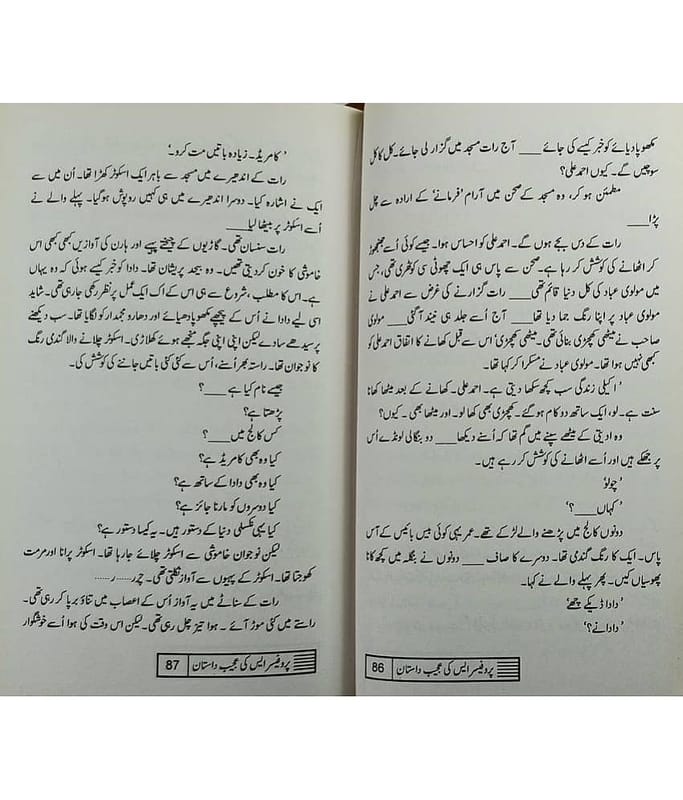 مکھوپادیائے کو خبر کیسے کی جائے ____ آج رات مسجد میں گزار لی جائے۔ کل کا کل
سوچیں گے۔ کیوں احمد علی؟
مطمئن ہو کر، وہ مسجد کے صحن میں آرام 'فرمانے' کے ارادہ سے چل
پڑا____
رات کے دس بجے ہوں گے۔ احمد علی کو احساس ہوا۔ جیسے کوئی اُسے جھنجھوڑ
کر اٹھانے کی کوشش کر رہا ہے۔ صحن سے پاس ہی ایک چھوٹی سی کوٹھری تھی، جس
میں مولوی عباد کی کل دنیا قائم تھی ____ رات گزارنے کی غرض سے احمد علی نے
مولوی عباد پر اپنا رنگ جما دیا تھا ____ آج اُسے جلد ہی نیند آگئی ____ مولوی
صاحب نے میٹھی کھچڑی بنائی تھی۔ میٹھی کھچڑی' اس سے قبل کھانے کا اتفاق احمد علی کو
کبھی نہیں ہوا تھا۔ مولوی عباد نے مسکرا کر کہا تھا۔
'اکیلی زندگی سب کچھ سکھا دیتی ہے۔ احمد علی۔ کھانے کے بعد میٹھا کھانا
سنت ہے۔ لو، ایک ساتھ دو کام ہو گئے۔ کھچڑی بھی کھا لو۔ اور میٹھا بھی۔ کیوں؟
وہ اویتی کے میٹھے سپنے میں گم تھا کہ اُسنے دیکھا ____ دو بنگالی لونڈے اُس
پر جھکے ہیں اور اُسے اٹھانے کی کوشش کر رہے ہیں۔
'چولو'
'کہاں ____؟'
دونوں کالج میں پڑھنے والے لڑکے تھے۔ عمر یہی کوئی بیس بائیس کے آس
پاس۔ ایک کا رنگ گندمی تھا۔ دوسرے کا صاف ____ دونوں نے بنگلہ میں کچھ کانا
پھوسیاں کیں۔ پھر پہلے والے نے کہا۔
'دادا ڈیکے چھے'
'دادا نے؟'
86 پروفیسر ایس کی عجیب داستان
'کامریڈ۔ زیادہ باتیں مت کرو۔'
رات کے اندھیرے میں مسجد سے باہر ایک اسکوٹر کھڑا تھا۔ اُن میں سے
ایک نے اشارہ کیا۔ دوسرا اندھیرے میں ہی کہیں روپوش ہوگیا۔ پہلے والے نے
اُسے اسکوٹر پر بیٹھا لیا____
رات سنسان تھی۔ گاڑیوں کے چیختے پہیے اور ہارن کی آوازیں کبھی کبھی اس
خاموشی کا خون کر دیتی تھیں۔ وہ بیحد پریشان تھا۔ دادا کو خبر کیسے ہوئی کہ وہ یہاں
ہے۔ اس کا مطلب، شروع سے ہی اس کے اک ایک عمل پر نظر رکھی جا رہی تھی۔ شاید
اسی لیے دادا نے اُس کے پیچھے مکھوپادھیائے اور دھارو مجمدار کو لگایا تھا۔ سب دیکھنے
پر سیدھے سادے لیکن اپنی اپنی جگہ منجھے ہوئے کھلاڑی۔ اسکوٹر چلانے والا گندمی رنگ
کا نوجوان تھا۔ راستہ بھر اُسنے، اُس سے کئی کئی باتیں جاننے کی کوشش کی۔
جیسے نام کیا ہے ____؟
پڑھتا ہے؟
کس کالج میں ____؟
کیا وہ بھی کامریڈ ہے؟
کیا وہ بھی دادا کے ساتھ ہے؟
کیا دوسروں کو مارنا جائز ہے؟
کیا یہی نکسلی دنیا کے دستور ہیں۔ یہ کیسا دستور ہے؟
لیکن نوجوان خاموشی سے اسکوٹر چلائے جا رہا تھا۔ اسکوٹر پرانا اور مرمت
کھوجتا تھا۔ اسکوٹر کے پہیوں سے آواز نکلتی تھی۔ چرر...... ر ......
رات کے سناٹے میں یہ آواز اُس کے اعصاب میں تناؤ برپا کر رہی تھی۔
راستے میں کئی موڑ آئے۔ ہوا تیز چل رہی تھی۔ لیکن اس وقت کی ہوا اُسے خوشگوار
87 پروفیسر ایس کی عجیب داستان